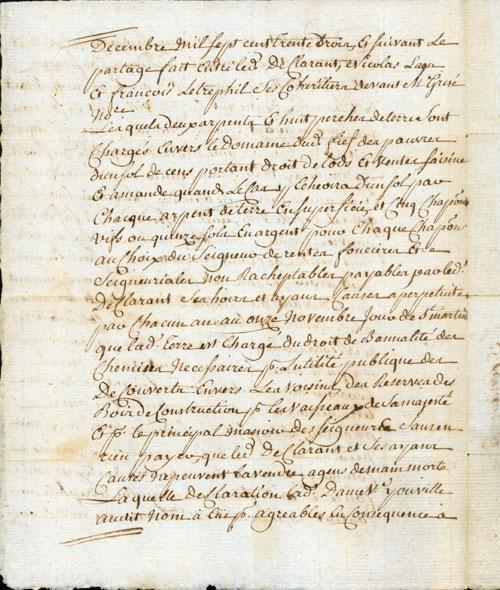 Decembre Mil sept cent trente trois, et suivant Le
partage fait Entre led. De Clarant et Nicolas
& françois Letrephil ses Coheritiers devant Me
No.re
Lesquels deux arpents & huit perches de terre sont
Chargés Envers le domaine dud. fief des pauvres
d'un sol de cens portant droit de Lods & ventes saisine
& amande quand Le Cas y Echeoira d'un sol par
Chacque arpent de terre En superficie, et Cinq Chapons
vifs ou quinze sols En argent pour Chaque Chapons
au Choix du Seigneur de rentes foncieres Et
Seigneuriales Non Racheptables payables par led.
de Clarant Ses hoirs et ayans Causes a perpetuité
par Chacun an au onze Novembre Jour de St martin
que lad. Terre est Chargé du droit de Bannalité des
Chemins Necessaires pr. Lutilité publique des
De Couverts Envers Les Voisins des Reserves des
Bois de Construction pr. les Vaisseaux de Sa majesté
& pr. le principal manoir des Seigneurs Sans en
rien payer, que led. de Clarant et Ses ayans
Causes Ne peuvent la vendre a gens de main morte
Laquelle de Claration lad. Dame Ve. youville
audit Nom à Eue pr. agreables En Consequence a